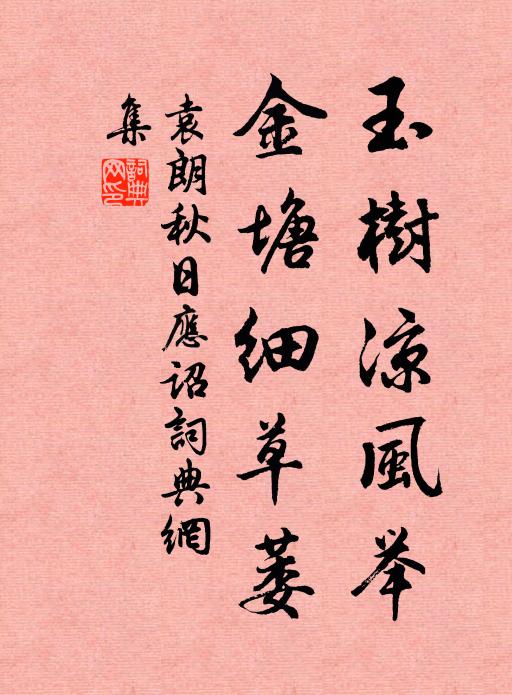 玉樹凉風举
金塘细草萎
袁朗秋日應詔詞典網
集
詞典网印